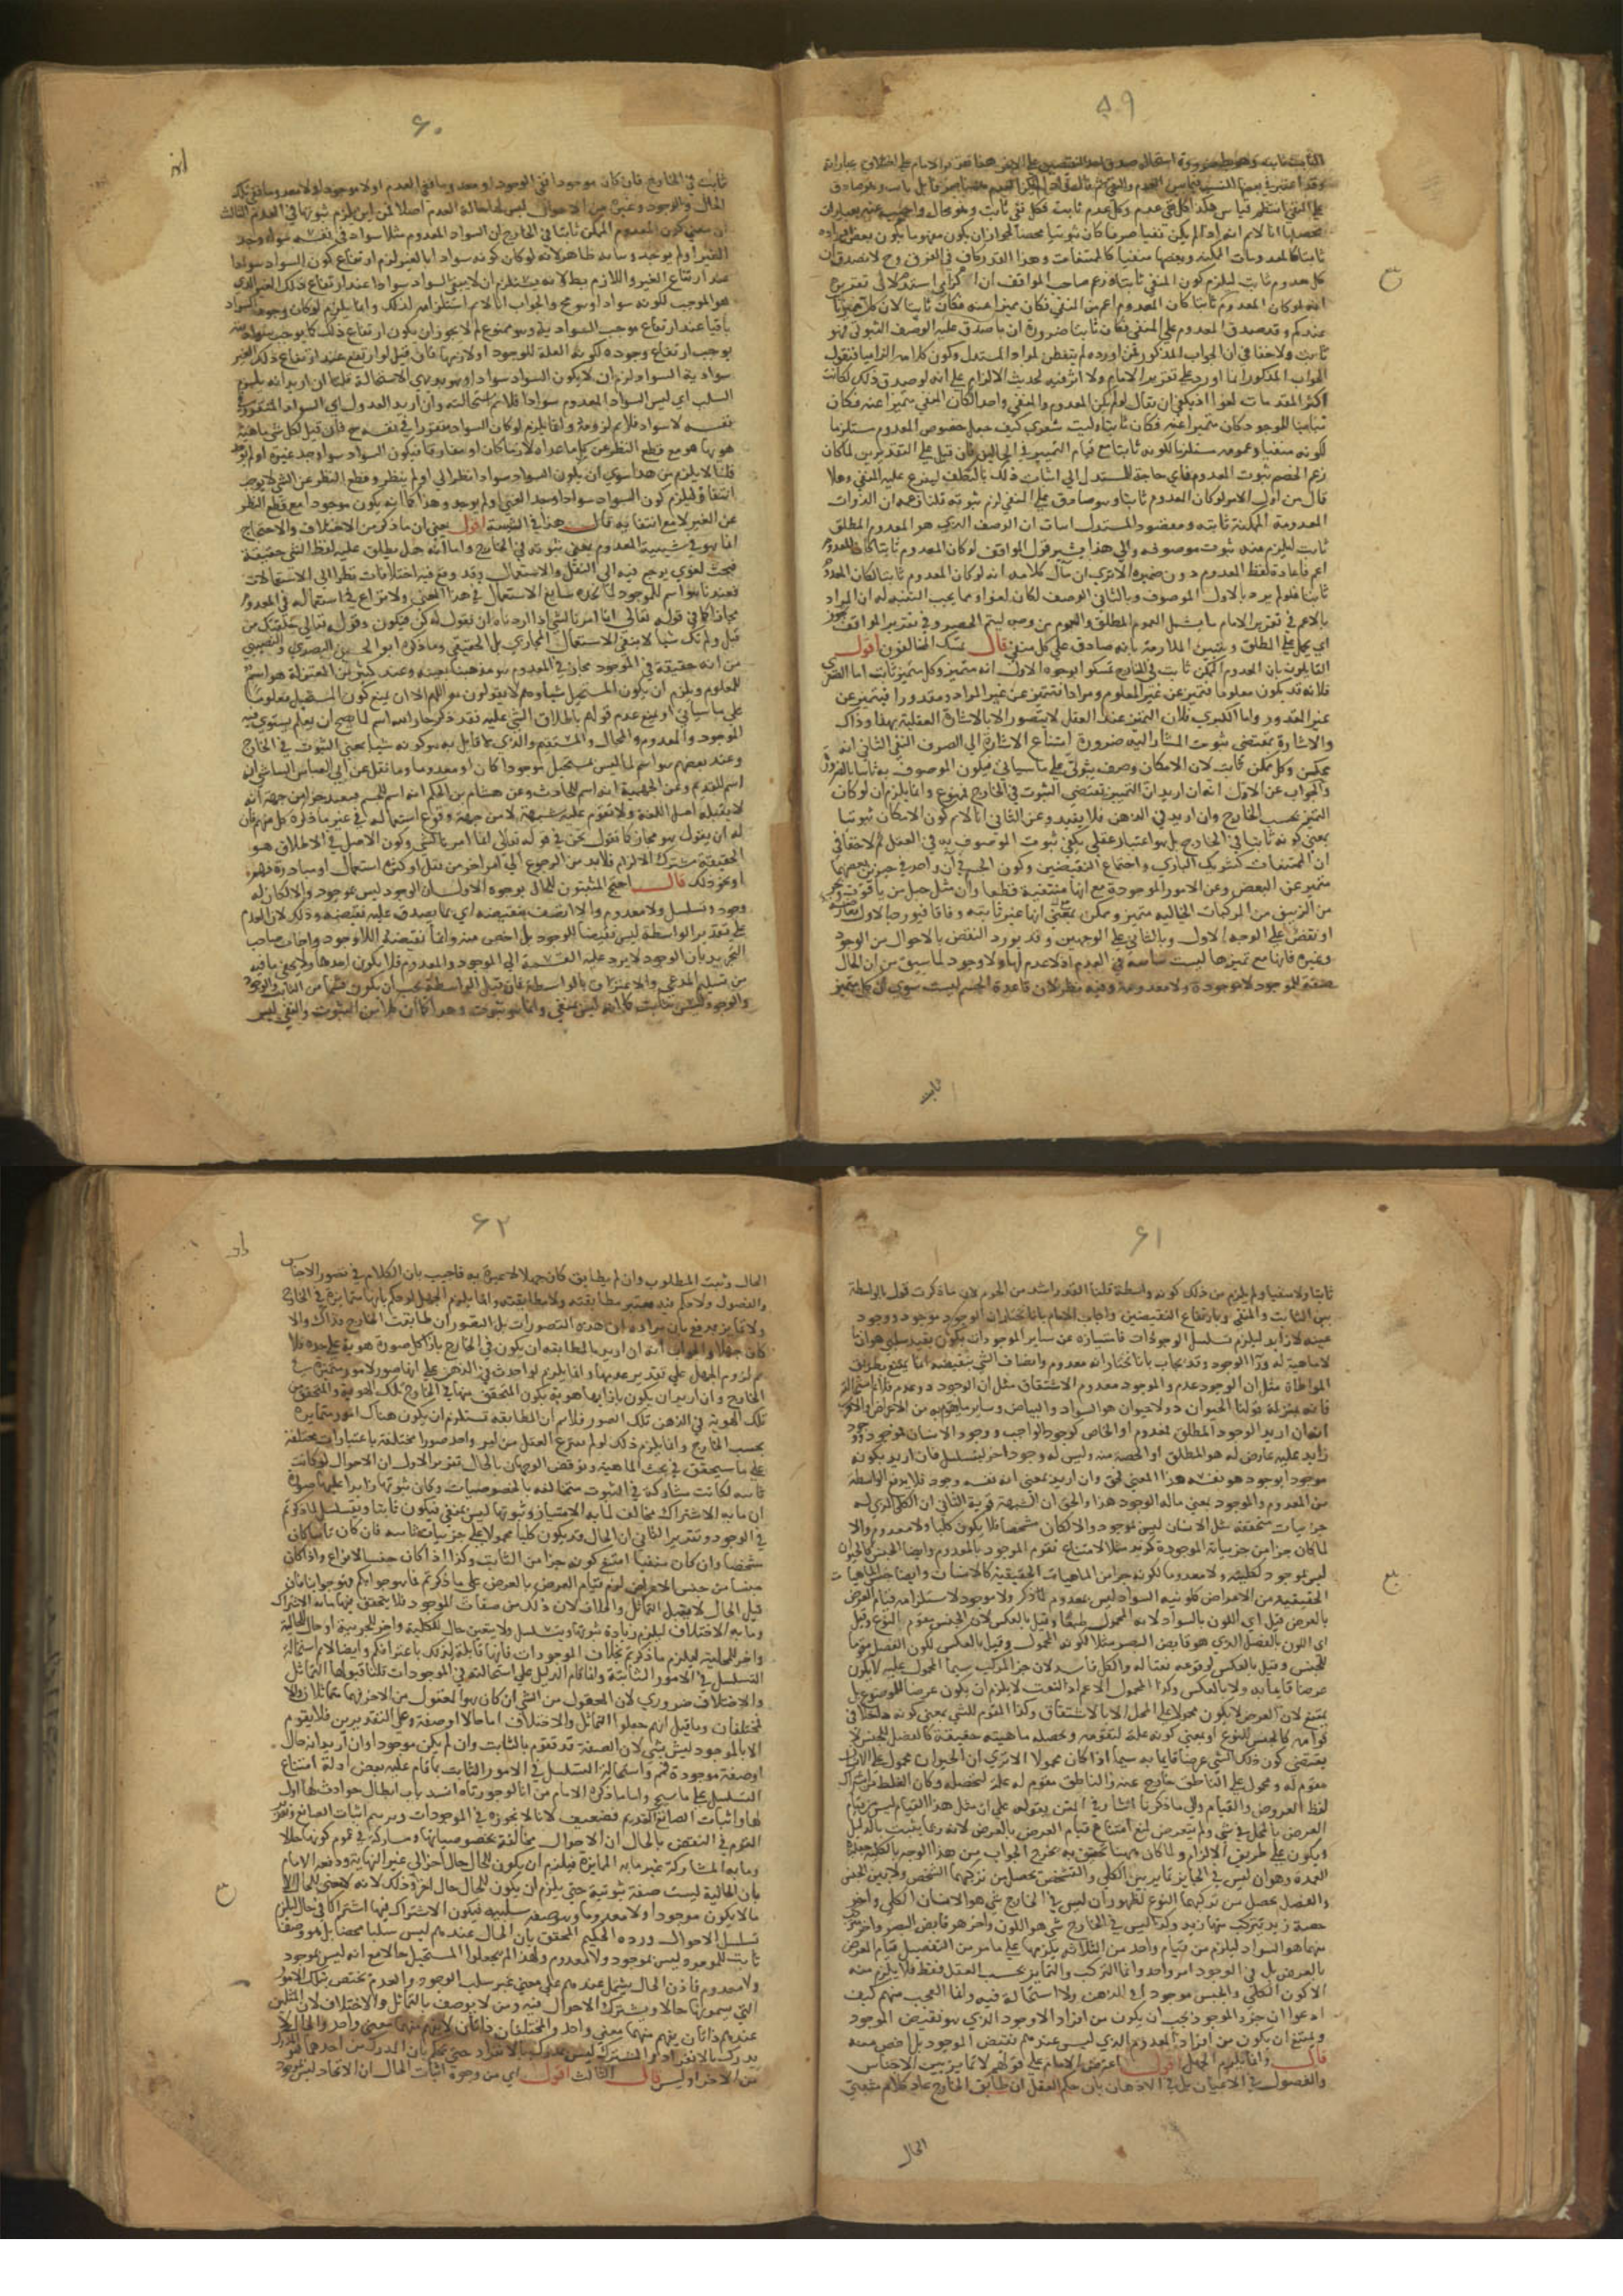 ٥٩
على النفي اسقط قياس هكذا كل نفي عدم وكل عدم ثابت فكل نفي ثابت وهو محال واجيب عنه بعبارات
ثابتا كالمعدومات الممكنة وبعضها منفيا كالممتنعات وهذا القدر كاف في الفرق وح لا يصدق ان
كل معدوم ثابت ليلزم كون المنفي ثابتا وزعم صاحب المواقف ان
انه لو كان المعدوم ثابتا كان المعدوم اعم من المنفي فكان متميزا عنه فكان ثابتا لان كل متميز ثابت
عندكم وقد صدق المعدوم على المنفي فكان ثابتا ضرورة ان ما صدق عليه الوصف الثبوتي فهو
ثابت ولا خفا في ان الجواب المذكور لمن اورده لم يتفطن لمراد المستدل وكون كلامه الزاميا فنقول
الجواب المذكور انما اورد على تقرير الامام ولا اثر فيه لحديث الالزام على انه لو صدق ذلك لكانت
اكثر المقدمات لغوا اذ يكفي ان يقال لو لم يكن المعدوم والمنفي واحدا لكان المنفي متميزا عنه فكان
مباينا للموجود كان متميزا عنه فكان ثابتا وليت شعري كيف جعل خصوص المعدوم مستلزما
لكونه منفيا وعمومه مستلزما لكونه ثابتا مع قيام التميز في الحالين فان قيل على التقديرين لما كان
زعم الخصم ثبوت المعدوم فاي حاجة للمستدل الى اثبات ذلك بالتكلف ليفرع عليه المنفي وهلا
قال من اول الامر لو كان المعدوم ثابتا وهو صادق على المنفي لزم ثبوته قلنا زعمه ان الذوات
المعدومة الممكنة ثابتة ومقصود المستدل اثبات ان الوصف الذي هو المعدوم المطلق
ثابت ليلزم منه ثبوت موصوفه والى هذا يشير قول المواقف لو كان المعدوم ثابتا كان المعدوم
اعم فاعادة لفظ المعدوم دون ضميره الا ترى ان مآل كلامه انه لو كان المعدوم ثابتا لكان المعدوم
ثابتا فلو لم يرد بالاول الموصوف وبالثاني الوصف لكان لغوا ومما يجب التنبه له ان المراد
بالاعم في تقرير الامام ما يشمل العموم المطلق والعموم من وجه ليتم الحصر وفي تقرير المواقف يجوز
اي يحمل على المطلق ويتبين الملازمة بانه صادق على كل منفي قال تمسك المخالفون اقول
القايلون بان المعدوم الممكن ثابت في الخارج تمسكوا بوجوه الاول انه متميز وكل متميز ثابت اما الصغرى
فلانه قد يكون معلوما فتميز عن غير المعلوم ومرادا فتميز عن غير المراد ومقدورا فيتميز عن
غير المقدور واما الكبرى فلان التميز عند العقل لا يتصور الا بالاشارة العقلية بهذا وذاك
والاشارة تقتضي ثبوت المشار اليه ضرورة امتناع الاشارة الى الصرف النفي الثاني انه
ممكن وكل ممكن ثابت لان الامكان وصف ثبوتي على ما سياتي فيكون الموصوف به ثابتا بالضرورة
والجواب عن الاول انه ان اريد ان التميز يقتضي الثبوت في الخارج فممنوع وانما يلزم ان لو كان
التميز بحسب الخارج وان اريد في الذهن فلا يفيد وعن الثاني انا لا نم كون الامكان ثبوتيا
بمعنى كونه ثابتا في الخارج بل هو اعتبار عقلي يكفي ثبوت الموصوف به في العقل ثم لا خفا في
ان الممتنعات كشريك الباري واجتماع النقيضين وكون الجسم في آن واحد في حيزين بعضها
متميز عن البعض وعن الامور الموجودة مع انها منتفية قطعا وان مثل جبل من ياقوت وبحر
من الزيبق من المركبات الخيالية متميز وممكن مع انها غير ثابتة وفاقا فيورد بالاول معارضة
او نقض على الوجه الاول وبالثاني على الوجهين وقد يورد النقض بالاحوال من الوجود
وغيره فانها مع تميزها ليست ثابتة في العدم اذ لا عدم لها ولا وجود لما سبق من ان الحال
صفة للموجود لا موجودة ولا معدومة وفيه نظر لان قاعدة الخصم ليست سوى ان كل متميز
ثابت
٦٠
ثابت في الخارج فان كان موجودا ففي الوجود او معدوما ففي العدم او لا موجودا ولا معدوما ففي تلك
الحال والوجود وغيره من الاحوال ليس لها حالة العدم اصلا فمن اين يلزم ثبوتها في العدم الثالث
ان معنى كون المعدوم الممكن ثابتا في الخارج ان السواد المعدوم مثلا سواد في نفسه سواء وجد
الغير او لم يوجد وبيانه ظاهر لانه لو كان كونه سوادا بالغير لزم ارتفاع كون السواد سوادا
عند ارتفاع الغير واللازم بط لانه يستلزم ان لا يبقى السواد سوادا عند ارتفاع ذلك الغير الذي
هو الموجب لكونه سوادا وهو مح والجواب انا لا نم استلزامه لذلك وانما يلزم لو كان وجود السواد
باقيا عند ارتفاع موجب السوادية وهو ممنوع لم لا يجوز ان يكون ارتفاع ذلك كما يوجب سواديته
يوجب ارتفاع وجوده لكونه العلة للوجود او لازمها فان قيل لو ارتفع عند ارتفاع ذلك الغير
سوادية السواد لزم ان لا يكون السواد سوادا وهو بديهي الاستحالة قلنا ان اريد انه يلزم
السلب اي ليس السواد المعدوم سوادا فلا نم استحالته وان اريد العدول اي السواد المتقرر في
نفسه لا سواد فلا نم لزومه وانما يلزم لو كان السواد متقررا في نفسه ح فان قيل لكل شي ماهية
هو بها هو مع قطع النظر عن كل ما عداه لازما كان او مفارقا فيكون السواد سوادا وجد غيره او لم يوجد
قلنا لا يلزم من هذا سوى ان يكون السواد سوادا نظر الى او لم ينظر وقطع النظر عن الشي لا يوجب
انتفاؤه ليلزم كون السواد سوادا وجد الغير او لم يوجد وهذا كما انه يكون موجودا مع قطع النظر
عن الغير لا مع انتفايه قال هذا في الشيئية اقول يعني ان ما ذكر من الاختلاف والاحتجاج
انما هو في شيئية المعدوم بمعنى ثبوته في الخارج واما انه هل يطلق عليه لفظ الشي حقيقة
فبحث لغوي يرجع فيه الى النقل والاستعمال وقد وقع فيه اختلافات نظرا الى الاستعمالات
فعندنا هو اسم للموجود لما نجده شايع الاستعمال في هذا المعنى ولا نزاع في استعماله في المعدوم
مجازا كما في قوله تعالى انما امرنا لشي اذا اردناه ان نقول له كن فيكون وقوله تعالى خلقتك من
قبل ولم تك شيا لا ينفي الاستعمال المجازي بل الحقيقي وما ذكره ابو الحسين البصري والنصيبي
من انه حقيقة في الموجود مجاز في المعدوم هو مذهبنا بعينه وعند كثير من المعتزلة هو اسم
للمعلوم ويلزم ان يكون المستحيل شيا وهم لا يقولون به اللهم الا ان يمنع كون المستحيل معلوما
على ما سياتي او يمنع عدم قولهم باطلاق الشي عليه فقد ذكر جار الله انه اسم لما يصح ان يعلم يستوي فيه
الموجود والمعدوم والمحال والمستقيم والذي لا قايل به هو كونه شيا بمعنى الثبوت في الخارج
وعند بعضهم هو اسم لما ليس بمستحيل موجودا كان او معدوما وما نقل عن ابي العباس الناشي انه
اسم للقديم وعن الجهمية انه اسم للحادث وعن هشام بن الحكم انه اسم للجسم فبعيد جدا من جهة انه
لا يقبله اهل اللغة ولا تقوم عليه شبهة لا من جهة وقوع استعماله في غير ما ذكره كل منهم فان
له ان يقول هو مجاز كما نقول نحن في قوله تعالى انما امرنا لشي وكون الاصل في الاطلاق هو
الحقيقة مشترك الالزام فلا بد من الرجوع الى امر اخر من نقل او كثرة استعمال او مبادرة فهم
او نحو ذلك قال احتج المثبتون للحال بوجوه الاول ان الوجود ليس بموجود والا لكان له
وجود وتسلسل ولا معدوم والا اتصف بنقيضه اي بما يصدق عليه نقيضه وذلك لان العدم
على تقدير الواسطة ليس نقيضا للوجود بل اخص منه وانما نقيضه اللاوجود واجاب صاحب
التجريد بان الوجود لا يرد عليه القسمة الى الموجود والمعدوم فلا يكون احدهما ولا يخفى ما فيه
من تسليم المدعى والاعتراف بالواسطة فان قيل الواسطة يجب ان يكون قسما من الثابت والوجود
والوجود ليس بثابت كما انه ليس بمنفي وانما هو ثبوت وهذا كما ان كلا من الثبوت والنفي ليس
٦١
ثابتا ولا منفيا ولم يلزم من ذلك كونه واسطة قلنا العذر اشد من الجرم لان ما ذكرت قول بالواسطة
بين الثابت والمنفي وبارتفاع النقيضين واجاب الامام بانا نختار ان الوجود موجود ووجوده
عينه لا زايد ليلزم تسلسل الوجودات فامتيازه عن ساير الموجودات يكون بقيد سلبي هو ان
لا ماهية له ورآ الوجود وقد يجاب بانا نختار انه معدوم واتصاف الشي بنقيضه انما يمتنع بطريق
المواطاة مثل ان الوجود عدم والموجود معدوم اما بالاشتقاق مثل ان الوجود ذو عدم فلا نم استحالته
فانه بمنزلة قولنا الحيوان ذو لا حيوان هو السواد والبياض وساير ما يقوم به من الاعراض والحق
انه ان اريد الوجود المطلق فمعدوم او الخاص كوجود الواجب ووجود الانسان فموجود ووجوده
زايد عليه عارض له هو المطلق او الحصة منه وليس له وجود اخر ليتسلسل فان اريد بكونه
موجودا بوجود هو نفسه هذا المعنى فحق وان اريد بمعنى انه نفسه وجود فلا يدفع الواسطة
بين المعدوم والموجود بمعنى ما له الوجود هذا والحق ان الشبهة قوية الثاني ان الكلي الذي له
جزئيات متحققة مثل الانسان ليس بموجود والا لكان مشخصا فلا يكون كليا ولا معدوم والا
لما كان جزا من جزئياته الموجودة كزيد مثلا لامتناع تقوم الموجود بالمعدوم وايضا الجنس كالحيوان
ليس بموجود لكليته ولا معدوما لكونه جزا من الماهيات الحقيقية كالانسان وايضا جنس الماهيات
الحقيقية من الاعراض كلونية السواد ليس بمعدوم لما ذكر ولا موجود لاستلزامه قيام العرض
بالعرض قيل اي اللون بالسواد لانه المحمول طبعا وقيل بالعكس لان الجنس يقوم النوع وقيل
اي اللون بالفصل الذي هو قابض البصر مثلا لكونه المحمول وقيل بالعكس لكون الفصل مقوما
للجنس وقيل بالعكس لوقوعه نعتا له والكل فاسد لان جز المركب سيما المحمول عليه لا يكون
عرضا قايما به ولا بالعكس وكذا المحمول الاعم او النعت لا يلزم ان يكون عرضا للموضوع بل
يمتنع لان العرض لا يكون محمولا على المحل الا بالاشتقاق وكذا المقوم للشي بمعنى كونه داخلا في
قوامه كالجنس للنوع او بمعنى كونه علة لتقومه وتحصله ماهيته حقيقة كالفصل للجنس لا
يقتضي كون ذلك الشي عرضا قايما به سيما اذا كان محمولا الا ترى ان الحيوان محمول على الانسان
مقوم له ومحمول على الناطق خارج عنه والناطق مقوم له علة لتحصله وكان الغلط من اشتراك
لفظ العروض والقيام والى ما ذكرنا اشار في المتن بقوله على ان مثل هذا القيام ليس بقيام
العرض بالمحل في شي ولم يتعرض لمنع امتناع قيام العرض بالعرض لانه ربما يثبت بالدليل
ويكون على طريق الالزام ولما كان مهنا تحقيق به يخرج الجواب عن هذا الوجه بالكلية
العمدة وهو ان ليس في الخارج تمايز بين الكلي والتشخص يحصل من تركبهما الشخص ولا بين الجنس
والفصل يحصل من تركبهما النوع لظهور ان ليس في الخارج شي هو الانسان الكلي واخر
حصة زيد يتركب منهما زيد وكذا ليس في الخارج شي هو اللون واخر هو قابض البصر واخر مركب
منهما هو السواد ليلزم من قيام واحد من الثلاثة بكل منها على ما مر من التفصيل قيام العرض
بالعرض بل في الوجود امر واحد وانما التركب والتمايز بحسب العقل فقط فلا يلزم منه
الا كون الكلي والجنس موجودا في الذهن ولا استحالة فيه وانما العجب منهم كيف
ادعوا ان جزء الموجود يجب ان يكون من افراد الوجود الذي هو نقيض الموجود
ويمتنع ان يكون من افراد المعدوم الذي ليس عندهم نقيض الموجود بل اخص منه
قال وانما يلزم الجهل اقول اعترض الامام على قولهم لا تمايز بين الاجناس
والفصول في الاعيان بل في الاذهان بان حكم العقل ان طابق الخارج عاد كلام مثبتي
الحال
٦٢
الحال وثبت المطلوب وان لم يطابق كان جهلا لا عبرة به فاجيب بان الكلام في تصور الاجناس
والفصول ولا حكم فيه معتبر مطابقته ولا مطابقته وانما يلزم الجهل لو حكم بانها متمايزة في الخارج
ولا تمايز مدفوع بان مراده ان هذه التصورات بل الصور ان طابقت الخارج فذاك والا
كان جهلا والجواب انه ان اريد بالمطابقة ان يكون في الخارج بازا كل صورة هوية على حدة فلا
نم لزوم الجهل على تقدير عدمها وانما يلزم لو اخذت في الذهن على انها صور لامور متميزة في
الخارج وان اريد ان يكون بازايها هوية يكون المتحقق بها في الخارج تلك الهوية والمتحقق من
تلك الهوية في الذهن تلك الصور فلا نم ان المطابقة تستلزم ان يكون هناك امور متمايزة
بحسب الخارج وانما يلزم ذلك لو لم ينتزع العقل من امر واحد صورا مختلفة باعتبارات مختلفة
على ما سيحقق في بحث الماهية ونوقض الوجهان بالحال تقرير الاول ان الاحوال لو كانت
ثابتة لكانت متشاركة في الثبوت متخالفة بالخصوصيات وكان ثبوتها زايدا عليها ضرورة
ان ما به الاشتراك مخالف لما به الامتياز وثبوتها ليس بمنفي فيكون ثابتا وتسلسل لما ذكرتم
في الوجود وتقرير الثاني ان الحال قد يكون كليا محمولا على جزئيات ثابتة فان كان ثابتا كان
مشخصا وان كان منفيا امتنع كونه جزا من الثابت وكذا اذا كان جنسا لانواع واذا كان
جنسا من جنس الاعراض لزم قيام العرض بالعرض على ما ذكرتم فما هو جوابكم فهو جوابنا فان
قيل الحال لا يقبل التماثل والاختلاف لان ذلك من صفات الموجود فلا يتحقق فيها ما به الاشتراك
وما به الاختلاف ليلزم زيادة ثبوتها وتسلسل ولا يتعين حال للكلية واخر للجزئية او حال للحالية
واخر للمحلية ليلزم ما ذكرتم بخلاف الموجودات فانها قابلة لذلك باعترافكم وايضا لا نم استحالة
التسلسل في الامور الثابتة وانما قام الدليل على استحالته في الموجودات قلنا قبولها التماثل
والاختلاف ضروري لان المعقول من الشي ان كان هو المعقول من الاخر فهما متماثلان والا
فمختلفان وما قيل انهم جعلوا التماثل والاختلاف اما حالا او صفة وعلى التقديرين فلا يقوم
الا بالموجود ليس بشي لان الصفة قد تقوم بالثابت وان لم يكن موجودا وان اريد انه حال
او صفة موجودة فمنع واستحالة التسلسل في الامور الثابتة مما قام عليه بعض ادلة امتناع
التسلسل على ما سيجي واما ما ذكره الامام من انا لو جوزناه انسد باب ابطال حوادث لا اول
لها واثبات الصانع القديم فضعيف لانا لا نجوزه في الموجودات وبه يتم اثبات الصانع وتقرير
القوم في النقض بالحال ان الاحوال متخالفة بخصوصياتها ومتشاركة في عموم كونها حالا
وما به المشاركة غير ما به المايزة فيلزم ان يكون للحال حال اخر الى غير النهاية ودفعه الامام
بان الحالية ليست صفة ثبوتية حتى يلزم ان يكون للحال حال اخر وذلك لانه لا معنى للحال الا
ما لا يكون موجودا ولا معدوما وهو صفة سلبية فيكون الاشتراك فيها اشتراكا في حال ليلزم
تسلسل الاحوال ورده الحكيم المحقق بان الحال عندهم ليس سلبا محضا بل هو وصف
ثابت للموجود ليس بموجود ولا معدوم ولهذا لم يجعلوا المستحيل حالا مع انه ليس بموجود
ولا معدوم فاذن الحال يشتمل عندهم على معنى غير سلب الوجود والعدم يختص بتلك الامور
التي يسمونها حالا ويشترك الاحوال فيه وهي لا يوصف بالتماثل والاختلاف لان المثلين
عندهم ذاتان يفهم منهما معنى واحد والمختلفان ذاتان لا يفهم منهما معنى واحد والحال لا
يدرك بالانفراد والمشترك ليس بمدرك بالانفراد حتى يحكم بان المدرك من احدهما هو المدرك
من الاخر او ليس قال الثالث اقول اي من وجوه اثبات الحال ان الاتحاد ليس بموجود